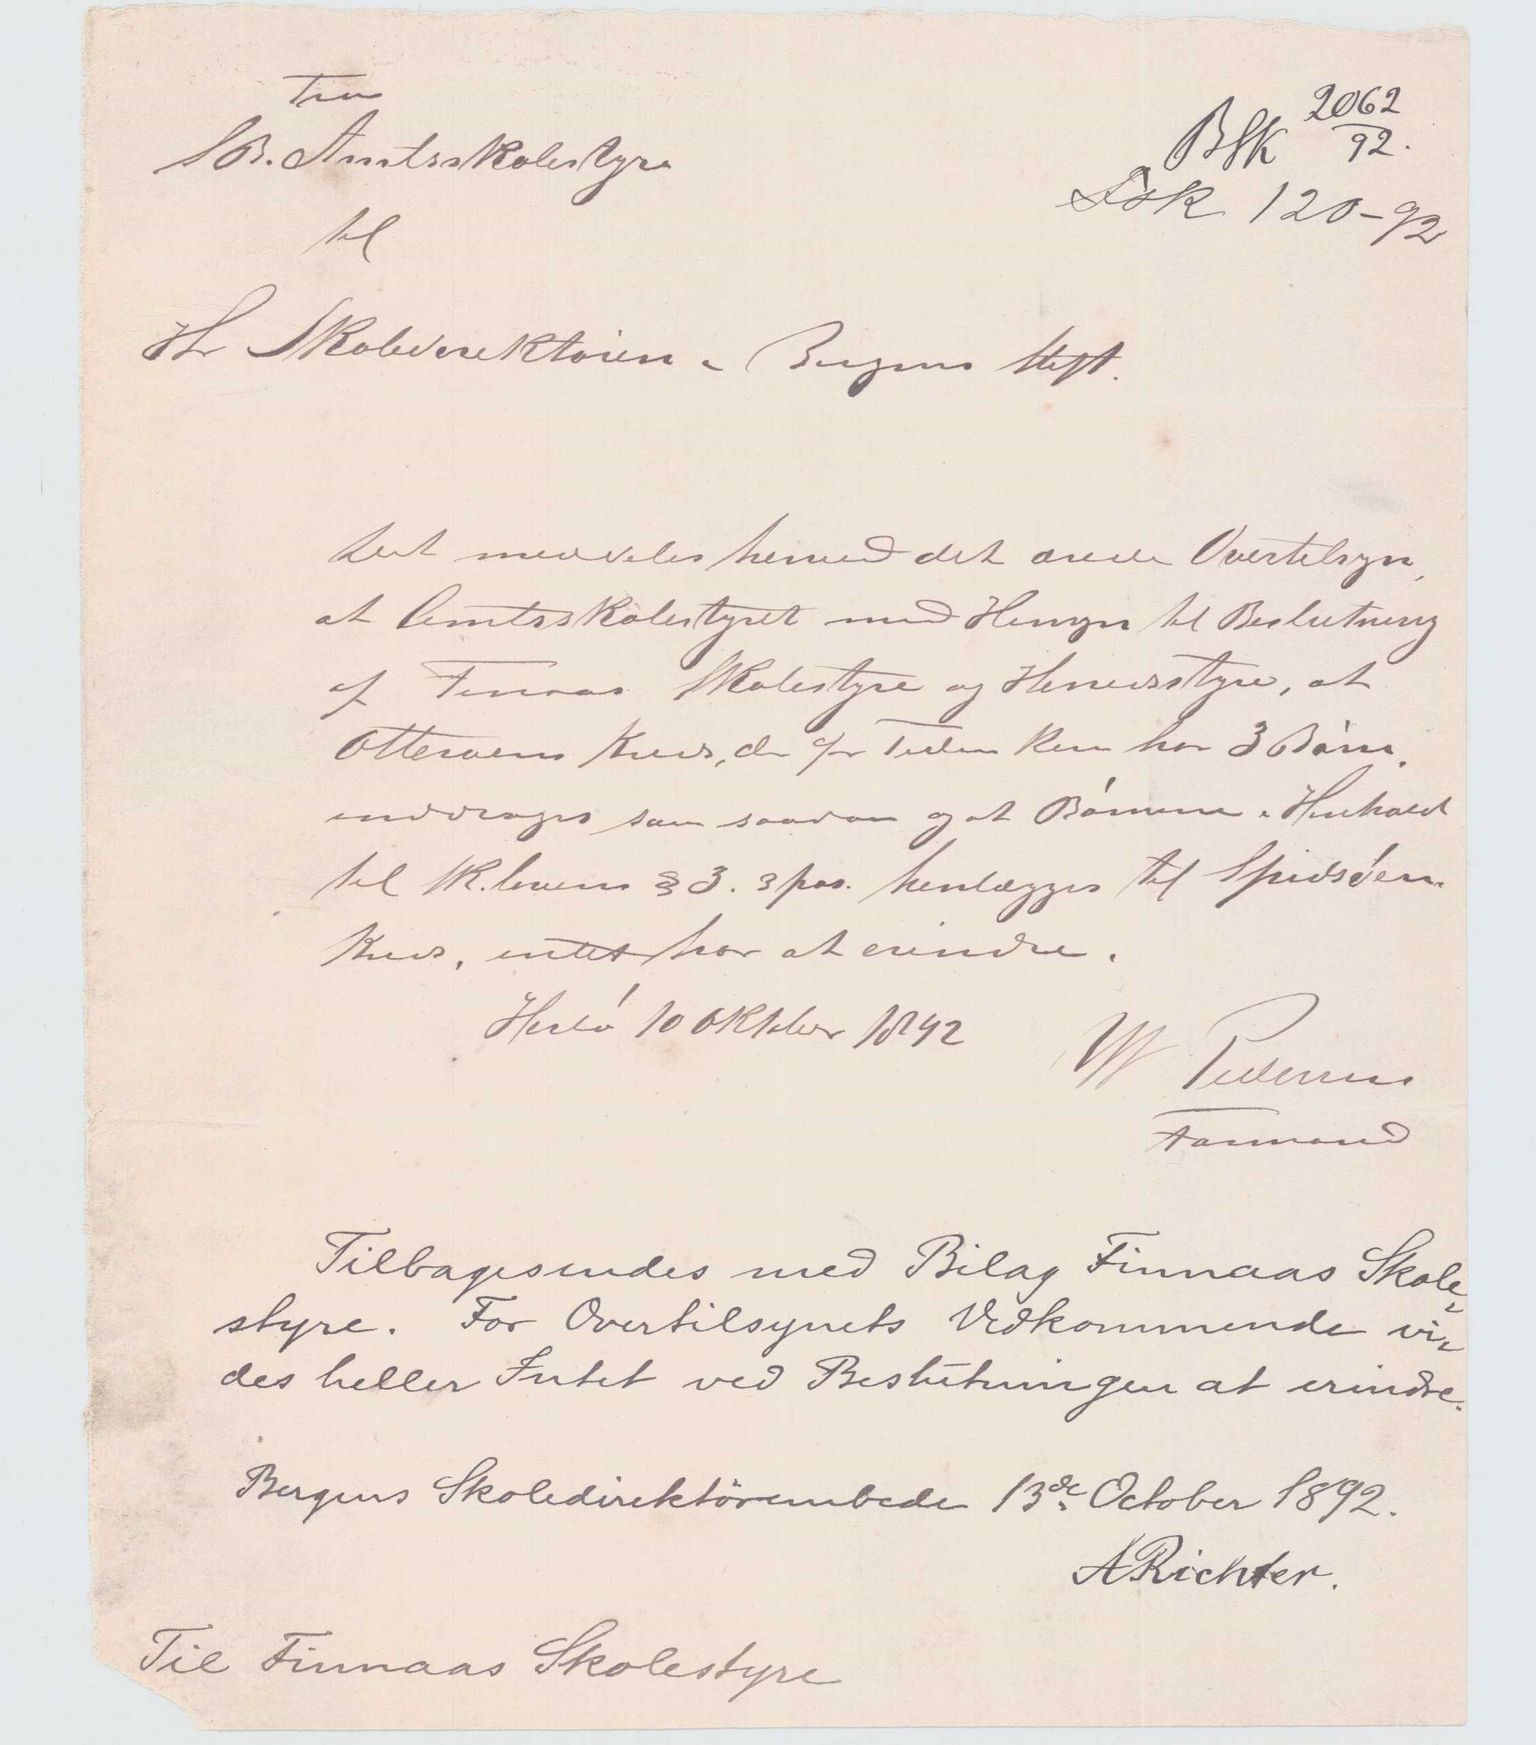 Fra
BSk 2062/92.
S. B. Amtsskolestyre
Fsk 120-92
til
Hr Skoledirektøren i Bergens Stift.
Det meddeles herved det ærede Overtilsyn,
at Amtsskolestyret med Hensyn til Beslutning
af Finnaas Skolestyre og Herredsstyre, at
Otterøens Kreds, der for Tiden kun har 3 Børn,
inddrages som saadan og at Børnene i Henhold
til Sk.lovens § 3. 3 pas. henlægges til Spidsøens
Kreds, intet har at erindre.
Herlø 10 Oktober 1892
W Pedersen
Formand
Tilbagesendes med Bilag Finnaas Skole-
styre. For Overtilsynets Vedkommende vi-
des heller Intet ved Beslutningen at erindre.
Bergens Skoledirektörembede 13de October 1892.
ARichter.
Til Finnaas Skolestyre